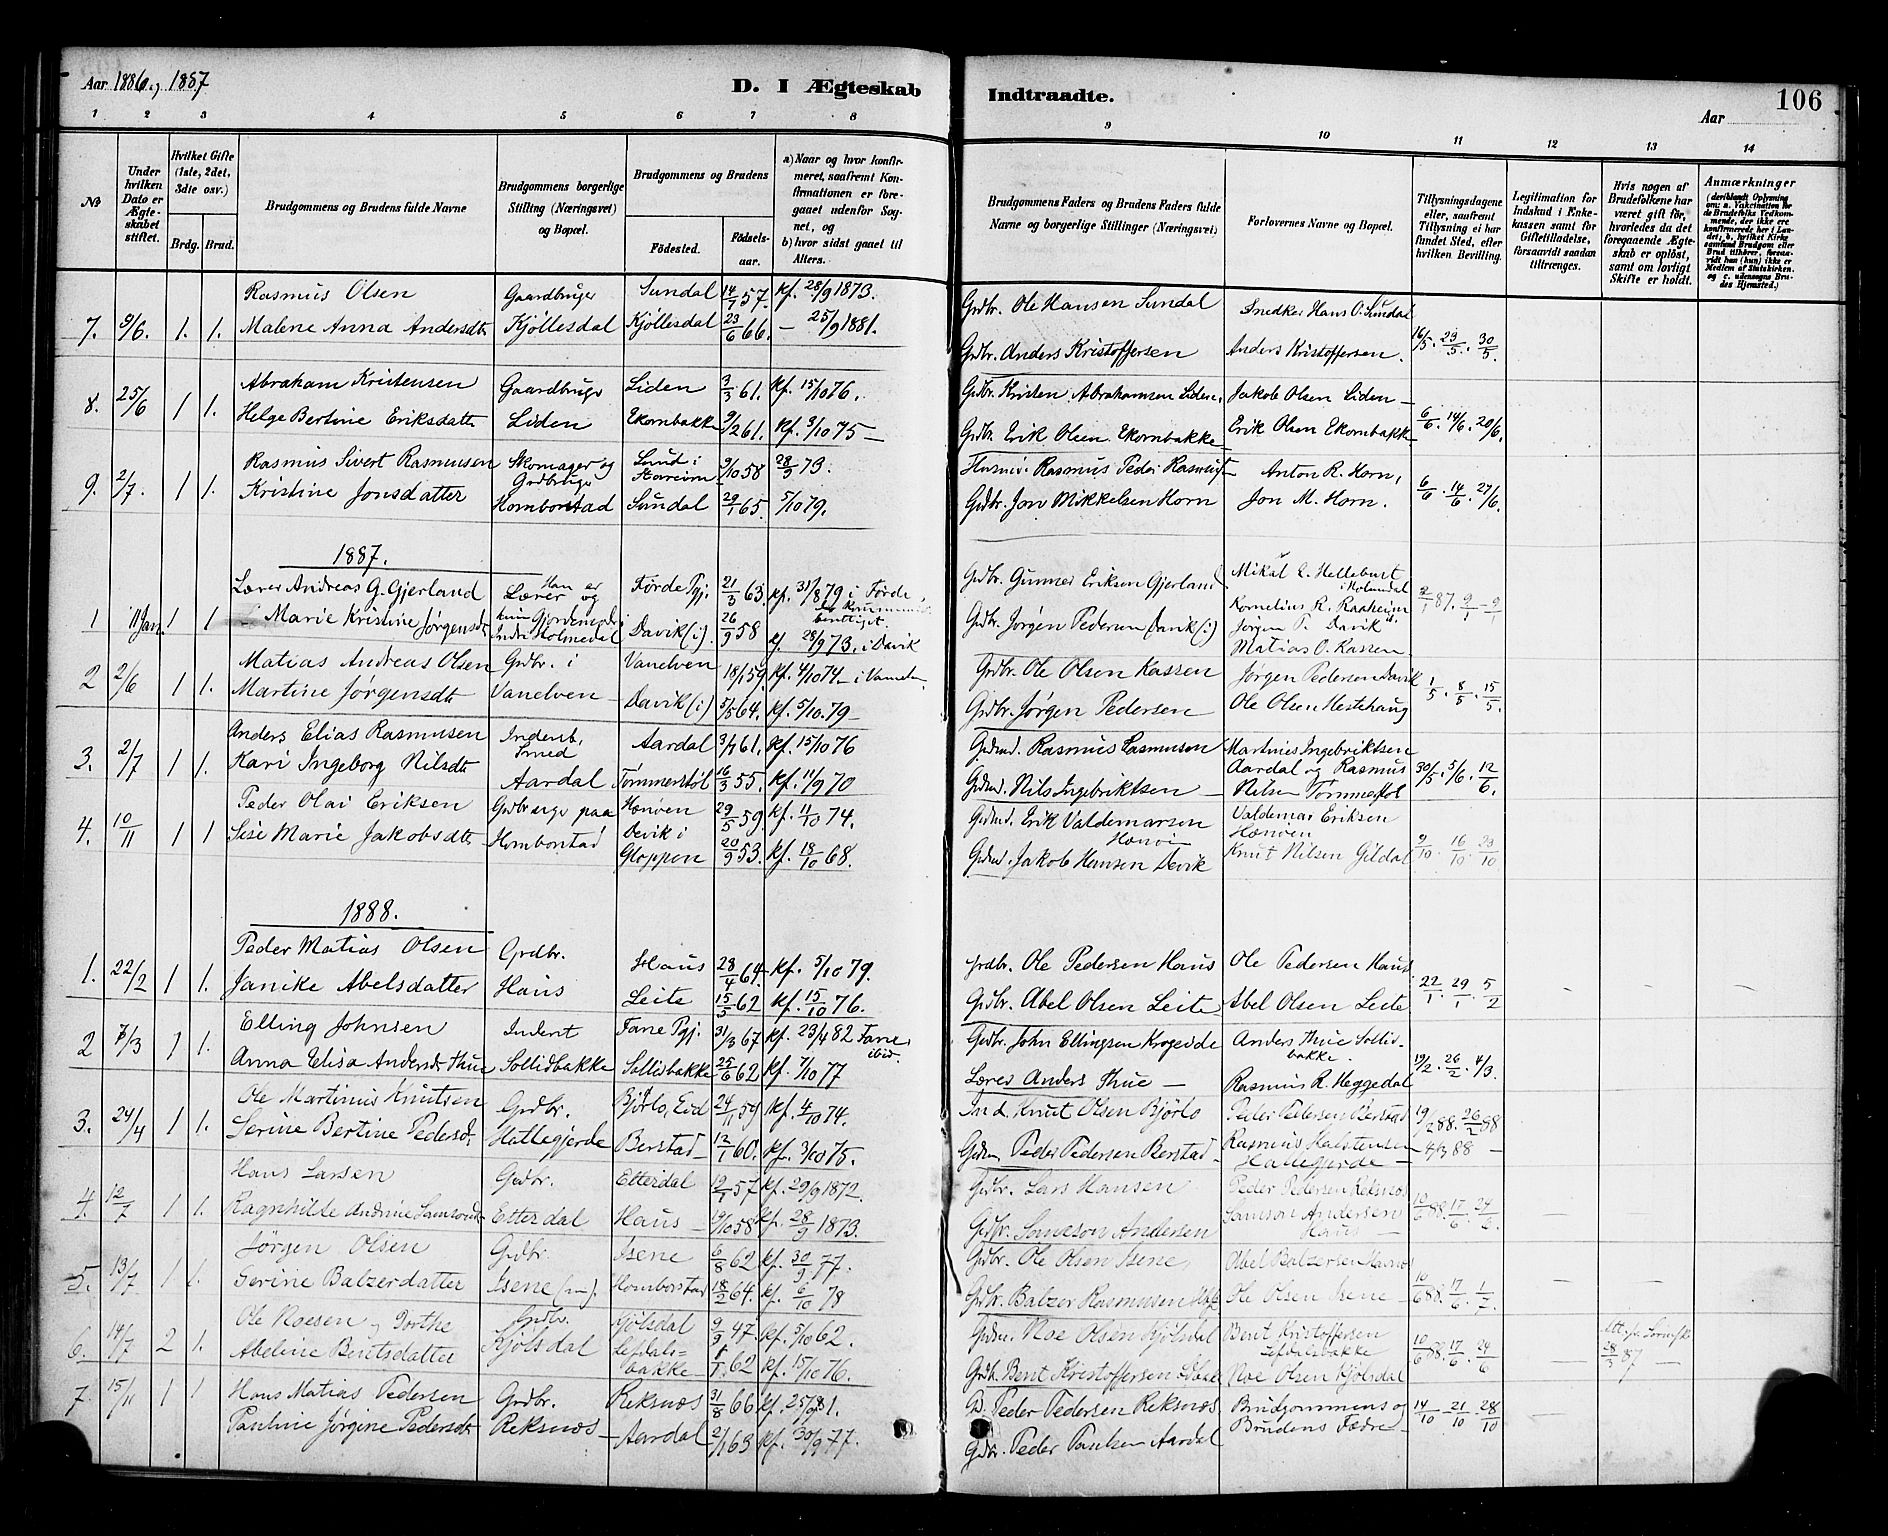 Aar 1886 og 1887
D. I Ægteskab
Indtraadte.
106
Aar
1 2 3 4 5 6 7 8 9 10 11 12 13 14
No.
Under hvilken Dato er Ægteskabet stiftet.
Hvilket Gifte (1ste, 2det, 3die osv.)
Brdg. Brud.
Brudgommens og Brudens fulde Navne
Brudgommens borgerlige Stilling (Næringsvei) og Bopæl.
Brudgommens og Brudens
Fødested. Fødselsaar.
a) Naar og hvor konfirmeret, saafremt Konfirmationen er foregaaet udenfor Sognet, og
b) hvor sidst gaaet til Alters.
Brudgommens Faders og Brudens Faders fulde Navne og borgerlige Stillinger (Næringsvei)
Forlovernes Navne og Bopæl.
Tillysningsdagene eller, saafremt Tillysning ei har fundet Sted, efter hvilken Bevilling.
Legitimation for Indskud i Enkekassen samt for Giftetilladelse, forsaavidt saadan tiltrænges.
Hvis nogen af Brudefolkene har været gift før, hvorledes da det foregaaende Ægteskab er opløst, samt om lovligt Skifte er holdt.
Anmærkninger (deriblandt Oplysning om: a. Vakcination for de Brudefolks Vedkommende, der ikke ere konfirmerede her i Landet; b. hvilket Kirkesamfund Brudgom eller Brud tilhører, forsaavidt han (hun) ikke er Medlem af Statskirken, og c. udensogns Brudes Hjemsted.)
Rasmus Olsen Gaardbruger Sundal 14/7 57. kf. 28/9 1873. Grdbr. Ole Hansen Sundal Snedker Hans O. Sundal
7. 9/6. 1. 1. Malene Anna Andersdtr Kjöllesdal Kjöllesdal 23/6 66. — 25/9 1881. Grdbr. Anders Kristoffersen Anders Kristoffersen. 16/5. 23/5. 30/5.
Abraham Kristensen Gaardbruger Liden 3/3 61. kf. 15/10 76. Grdbr. Kristen Abrahamsen Liden. Jakob Olsen Liden —
8. 25/6 1 1. Helge Bertine Eriksdatter Liden Ekornbakke 9/2 61. kf. 3/10 75 — Grdbr. Erik Olsen Ekornbakke Erik Olsen Ekornbakke 6/6. 14/6. 20/6.
Rasmus Sivert Rasmussen Skomager og Grdbruger Lund i Stareim 9/10 58 28/9 73. Husm. Rasmus Peder Rasmus. Anton R. Horn,
9. 2/7. 1 1. Kristine Jonsdatter Hombornstad Sundal 29/1 65. 5/10 79. Grdbr. Jon Mikkelsen Horn Jon M. Horn. 6/6. 14/6. 27/6.
1887.
Lærer Andreas G. Gjerland Han er Lærer og Førde Pgj. 21/3 63. kf. 31/8 79 i Førde, Grdbr. Gunner Eriksen Gjerland Mikal L. Hellebust i Holmedal
1 11 Jan. 1 1 — Marie Kristine Jørgensdtr hun Gjordemoder i Indre Holmedal Davik (i). 26/9 58 kf. 28/9 73. i Davik Grdbr. Jørgen Pedersen Davik (i) Kornelius R. Raaheim Jørgen P. Davik 2/1 87. 9/1 — 9/1
Matias O. Kassen
Matias Andreas Olsen Grdbr. i Vanelven 18/1 59. kf. 4/10 74 — i Vanelv. Grdbr. Ole Olsen Kassen Jørgen Pedersen Davik
2 2/6 1 1. Martine Jørgensdtr Vanelven Davik (i) 5/8 64. kf. 5/10. 79 — Grdbr. Jørgen Pedersen Ole Olsen Hestehaug 1/5. 8/5. 15/5.
Anders Elias Rasmusen Inderst, Smed Aardal 3/7 61. kf. 15/10 76 Grdmd. Rasmus Rasmusen Martines Ingebriktsen
3. 2/7 1 1. Kari Ingeborg Nilsdtr Aardal Tømmerstöl 16/3 55. kf. 11/9 70 Grdmd. Nils Ingebriktsen — Aardal og Rasmus Nilsen Tømmerstöl 30/5. 5/6. 12/6.
Peder Olai Eriksen Grdbruger paa Hænven 29/5 59. kf. 11/10 74. Grdmd. Erik Valdemarsen Hænven Valdemar Eriksen Hænven
4. 10/11 1 1 Sise Marie Jakobsdtr Hombornstad Devik i Gloppen 20/9 53. kf. 18/10 68. Grdmd. Jakob Hansen Devik Knut Nilsen Gildal 9/10. 16/10. 23/10
1888.
Peder Matias Olsen Grdbr. Haus 28/4 64. kf. 5/10 79. Grdbr. Ole Pedersen Haus Ole Pedersen Haus
1. 22/2 1 1. Janike Abelsdatter Haus Leite 15/5 62 kf. 15/10 76. Grdbr. Abel Olsen Leite Abel Olsen Leite 22/1. 29/1. 5/2 — —
Elling Johnsen Inderst Fane Pgj. 31/3 67 kf. 23/4 82 Fane, ibid. Grdbr. John Ellingsen Krogedde Anders Thue Sollidbakke.
2 7/3 1 1. Anna Elisa Andersdr Thue Sollidbakke Sollidbakke 25/6 62 kf. 7/10 77 Lærer Anders Thue — Rasmus R. Heggedal 19/2. 26/2. 4/3.
Ole Martinius Knutsen Grdbr. Bjórlo, Eid 24/11 59 kf. 4/10 74. Ind. Knut Olsen Bjórlo Peder Pedersen Berstad 19/2 88. 26/2 88
3. 24/4 1 1. Serine Bertine Pedersd. Hattegjerde Berstad — 12/1 60. kf. 3/10 75. Grdm. Peder Pedersen Berstad — Rasmus Halstensen Hattegjerde — 4/3 88 —
Hans Larsen Grdbr. Etterdal 12/1 57 kf. 29/9 1872. Grdbr. Lars Hansen Peder Pedersen Reksnøs
4. 12/7 1 1 Ragnhilde Andrine Samsonsd. Etterdal Haus — 19/10 58 kf. 28/9 1873. Grdbr. Samson Andersen Samson Andersen Haus — 10/6 88. 17/6. 24/6. — —
Jørgen Olsen Grdbr. Isene 6/8 62 kf. 30/9 77. Grdbr. Ole Olsen Isene, Abel Balzersen Hornes
5. 13/7 1 1. Serine Balzerdatter Isene Hombornstad 18/2 64. kf. 6/10 78 Grdbr. Balzer Rasmusen Ole Olsen Isene — 10/6 88. 17/6. — —
Ole Noesen og Dorthe Grdbr. Kjölsdal 9/9 47. kf. 5/10 62. Grdm. Noe Olsen Kjölsdal Bent Kristoffersen Lefdalsbakke
6. 14/7 2 1. Abeline Bentsdatter Kjölsdal Lefdalsbakke — 62 kf. 15/10 76. Grdb. Bent Kristoffersen Noe Olsen Kjölsdal 10/6 88. 17/6. 24/6 — 28/3 87 —
7. 15/11 1 1 Hans Matias Pedersen Grdbr. Reksnøs 31/8 66 kf. 25/9 81. G. Peder Pedersen Reksnøs Brudgommens og 14/10. 21/10. 28/10 —
Pauline Jørgine Pedersdtr Reksnøs — Aardal 2/1 63 kf. 30/9 77. Grdbr. Peder Paulsen Aardal Brudens Fædre —